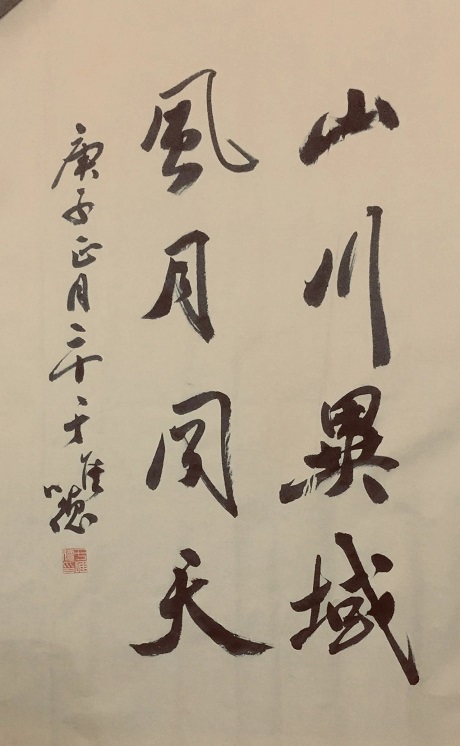 山川異域
風月同天
庚子正月二十